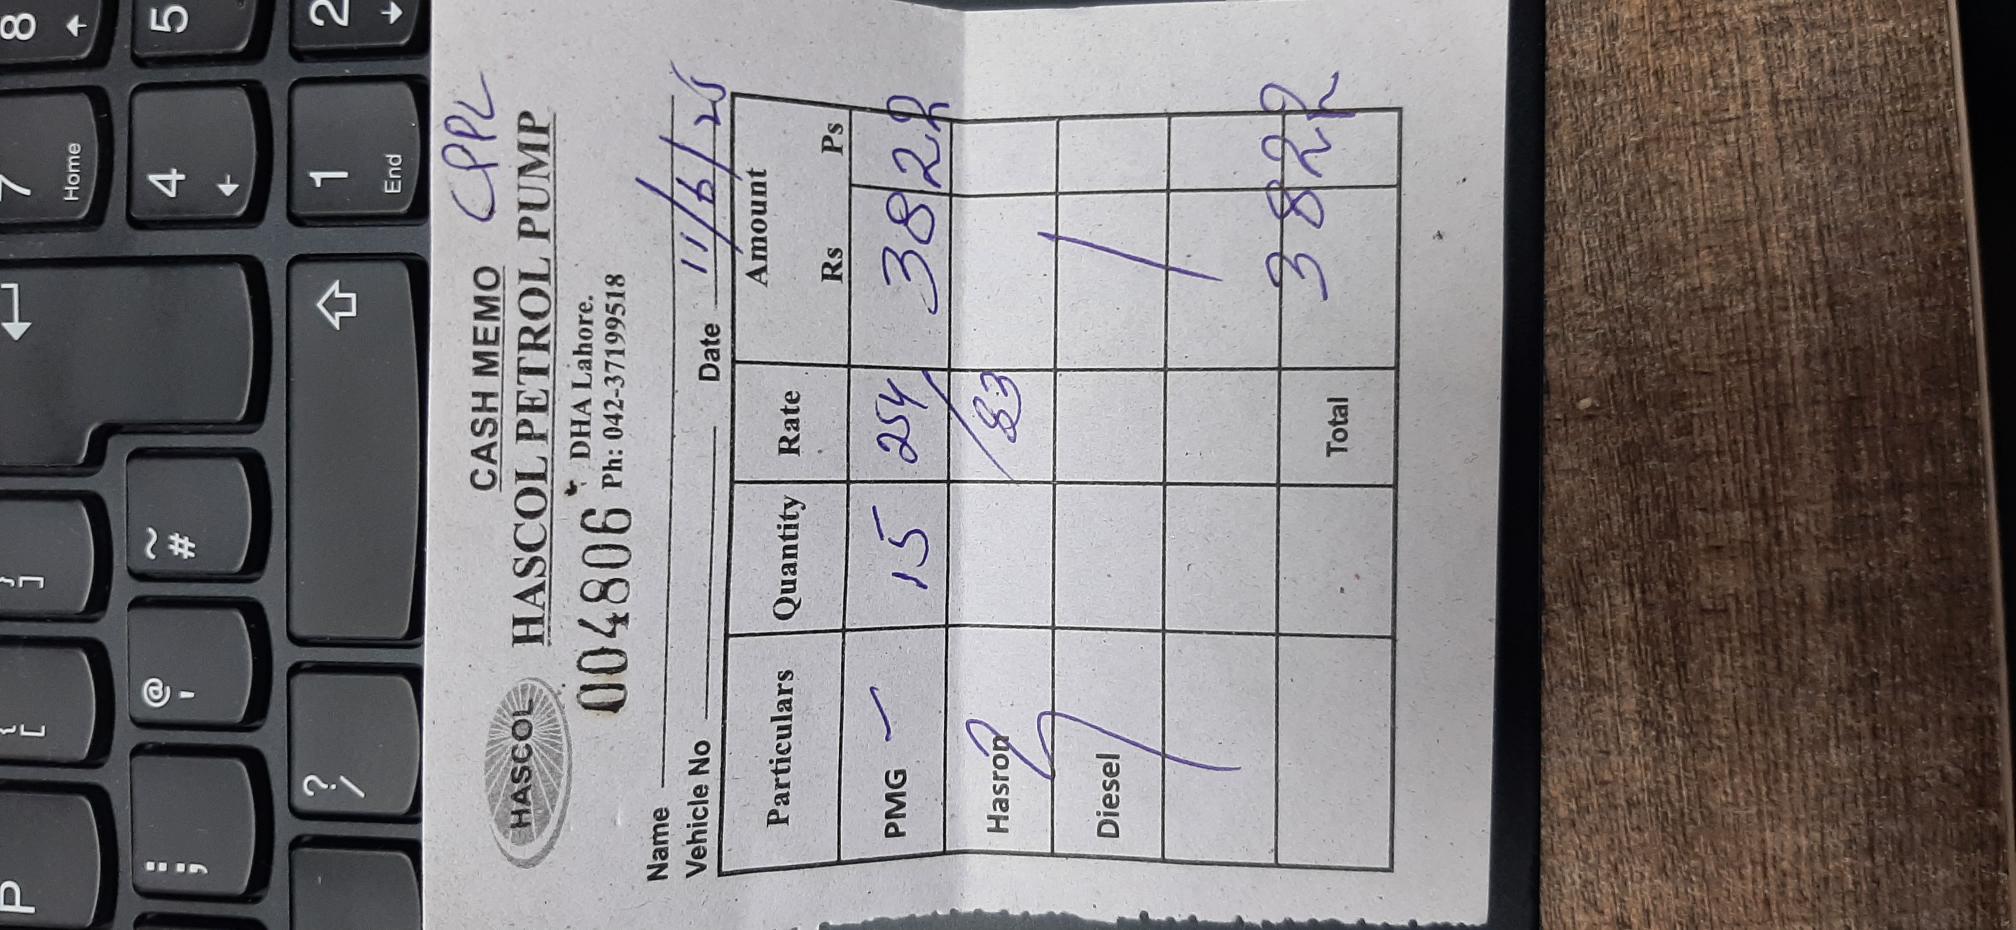 P { [ } ] 7 Home 8
: ; @ ' ~ # 4 5
? / 1 End 2
CASH MEMO CPPL
HASCOL HASCOL PETROL PUMP
004806 DHA Lahore.
Ph: 042-37199518
Name
Vehicle No Date 11/6/25
Particulars Quantity Rate Amount
Rs Ps
PMG 15 254 3822
Hasron /83
Diesel
Total 3822